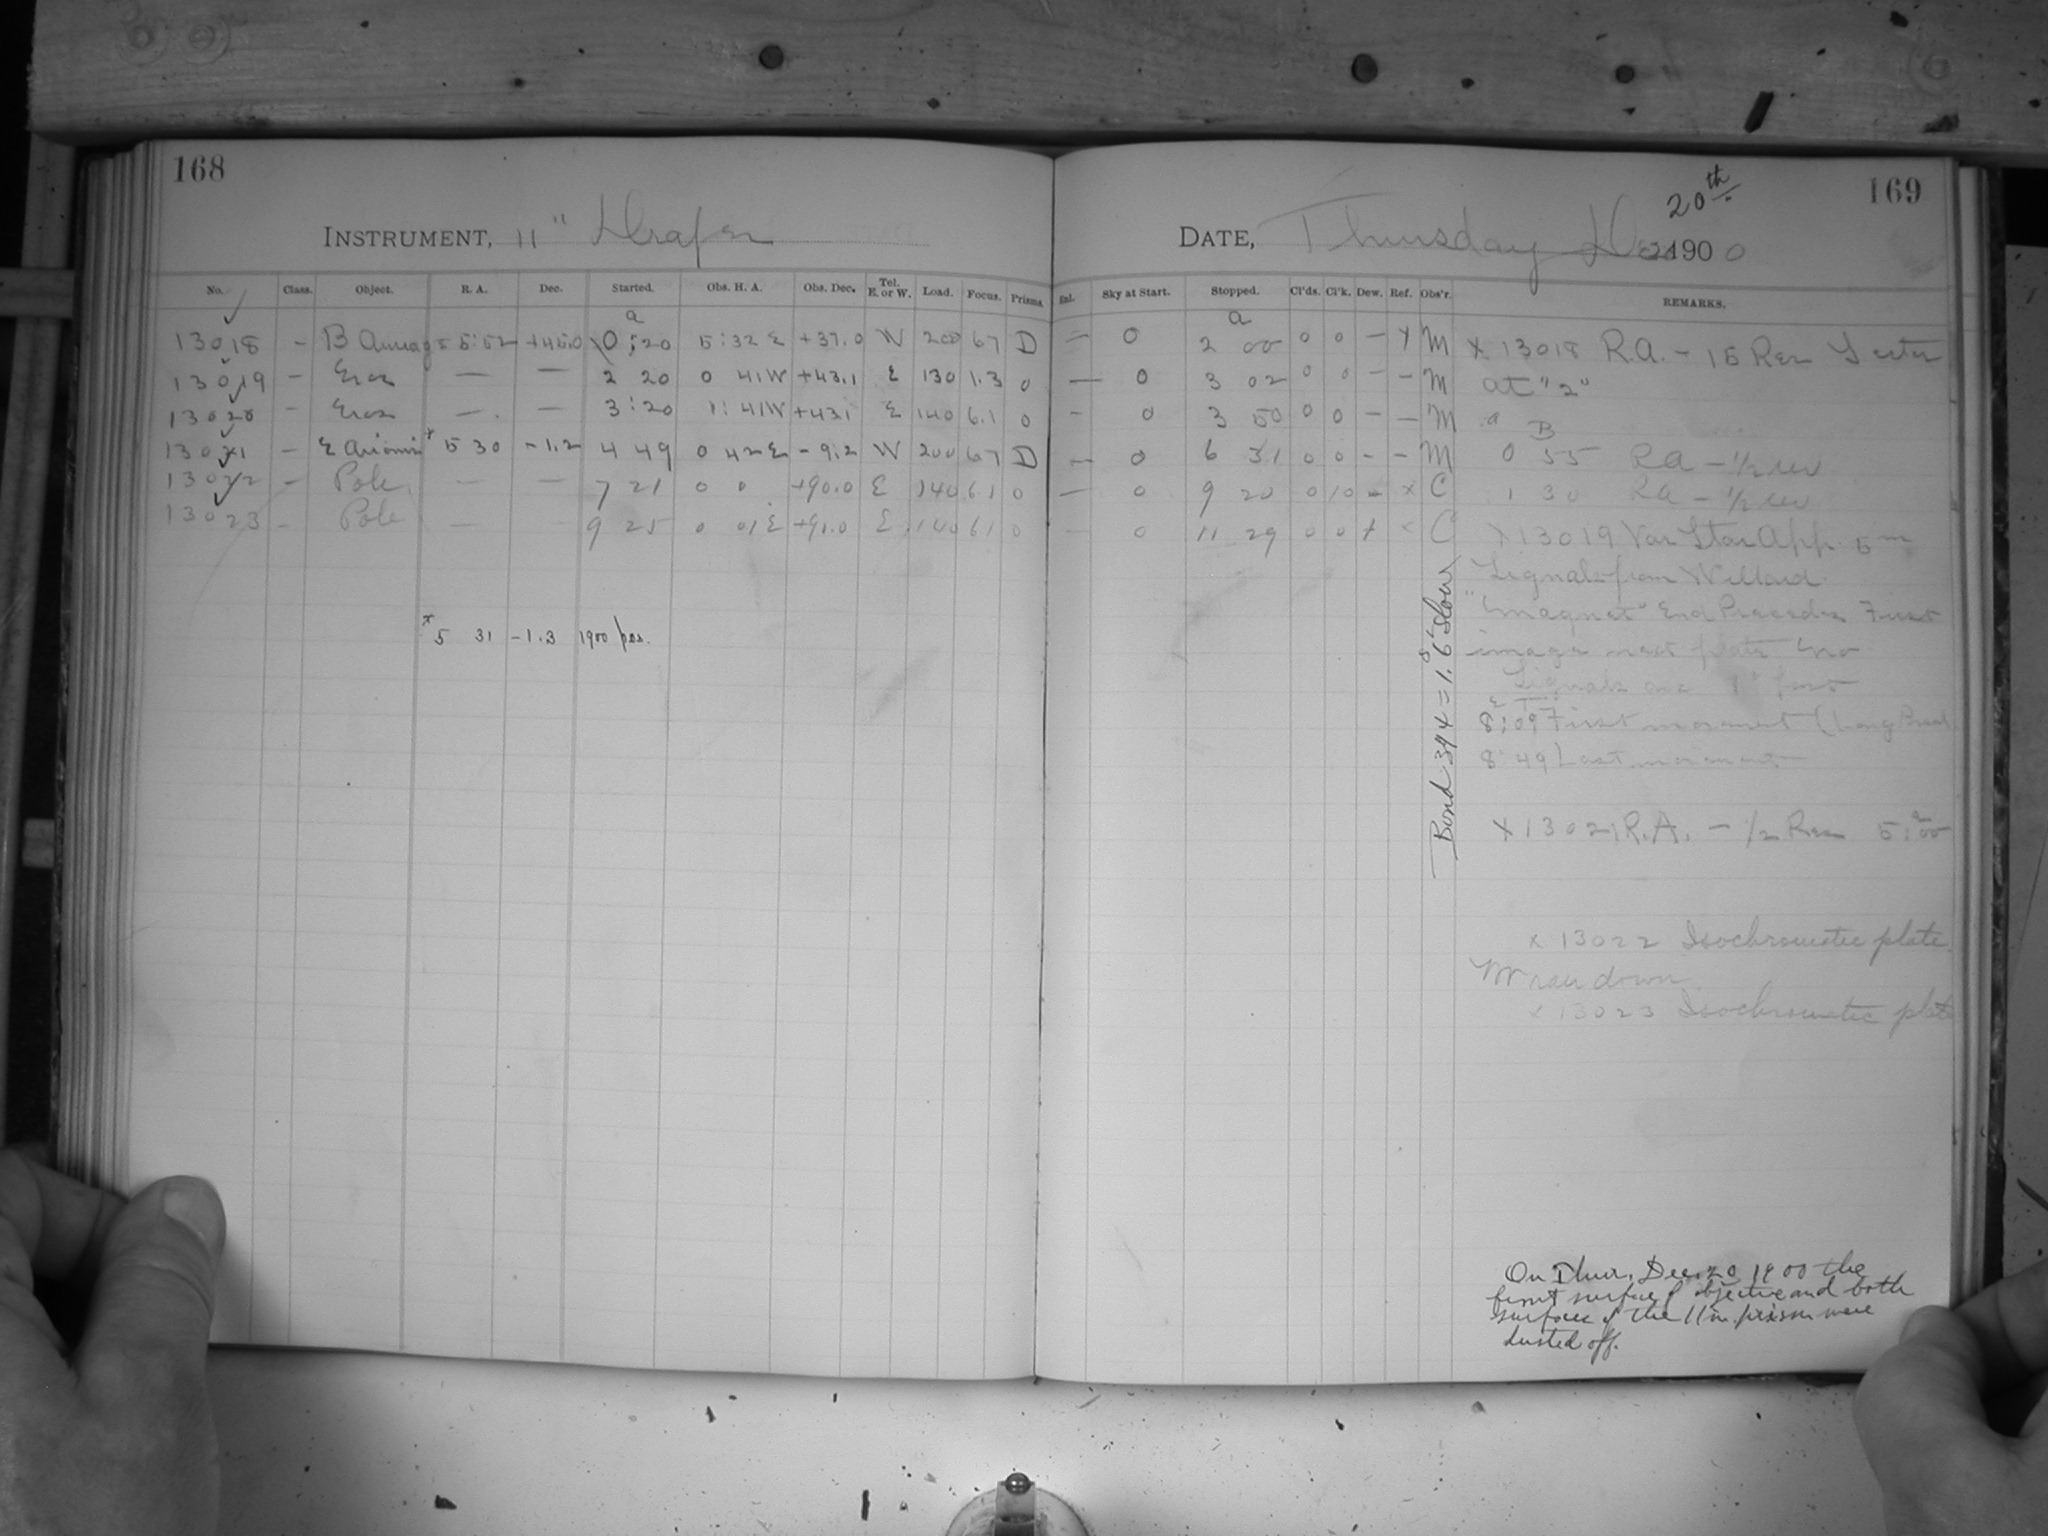 168
INSTRUMENT, 11" Draper
No. Class. Object. R. A. Dec. Started. Obs. H. A. Obs. Dec. Tel. E. or W. Load. Focus. Prisms.
a
13018 – B Aurigæ 5:52 +45.0 0:20 5:32 E +37.0 W 200 67 D
13019 – Eros — — 2 20 0 41W +43.1 E 130 1.3 0
13020 – Eros — — 3:20 1:41W +43.1 E 140 6.1 0
13021 – E Orionis x 5 30 –1.2 4 49 0 42 E –9.2 W 200 67 D
13022 – Pole — — 7 21 0 0 +90.0 E 140 6.1 0
13023 – Pole — — 9 25 0 01 E +91.0 E 140 6.1 0
x 5 31 –1.3 1900 pos.
169
DATE, Thursday Dec 20th 1900
Sky at Start. Stopped. Cl'ds. Cl'k. Dew. Ref. Obs'r. REMARKS.
a
— 0 2 00 0 0 – x M
— 0 3 02 0 0 – – M
– 0 3 50 0 0 – – M
– 0 6 31 0 0 – – M
— 0 9 20 0 10 – x C
– 0 11 29 0 0 + x C
Bond 394 = 1.6s Slow
x 13018 R.A. – 15 Rev
at "2"
a B
0 55 RA – 1/2 rev
1 30 RA – 1/2 rev
x 13019 Var Star App. 5m
Signals from Willard
"Magnet" End Precedes First
image next plate no
Signals are 1s fast
8:09 First movement (Long Break
8:49 Last movement
x 13021 R.A. – 1/2 Rev 5:00 a
x 13022 Isochromatic plate
M ran down
x 13023 Isochromatic plate
On Thur. Dec. 20 1900 the
front surface of objective and both
surfaces of the 11 in. prism were
dusted off.